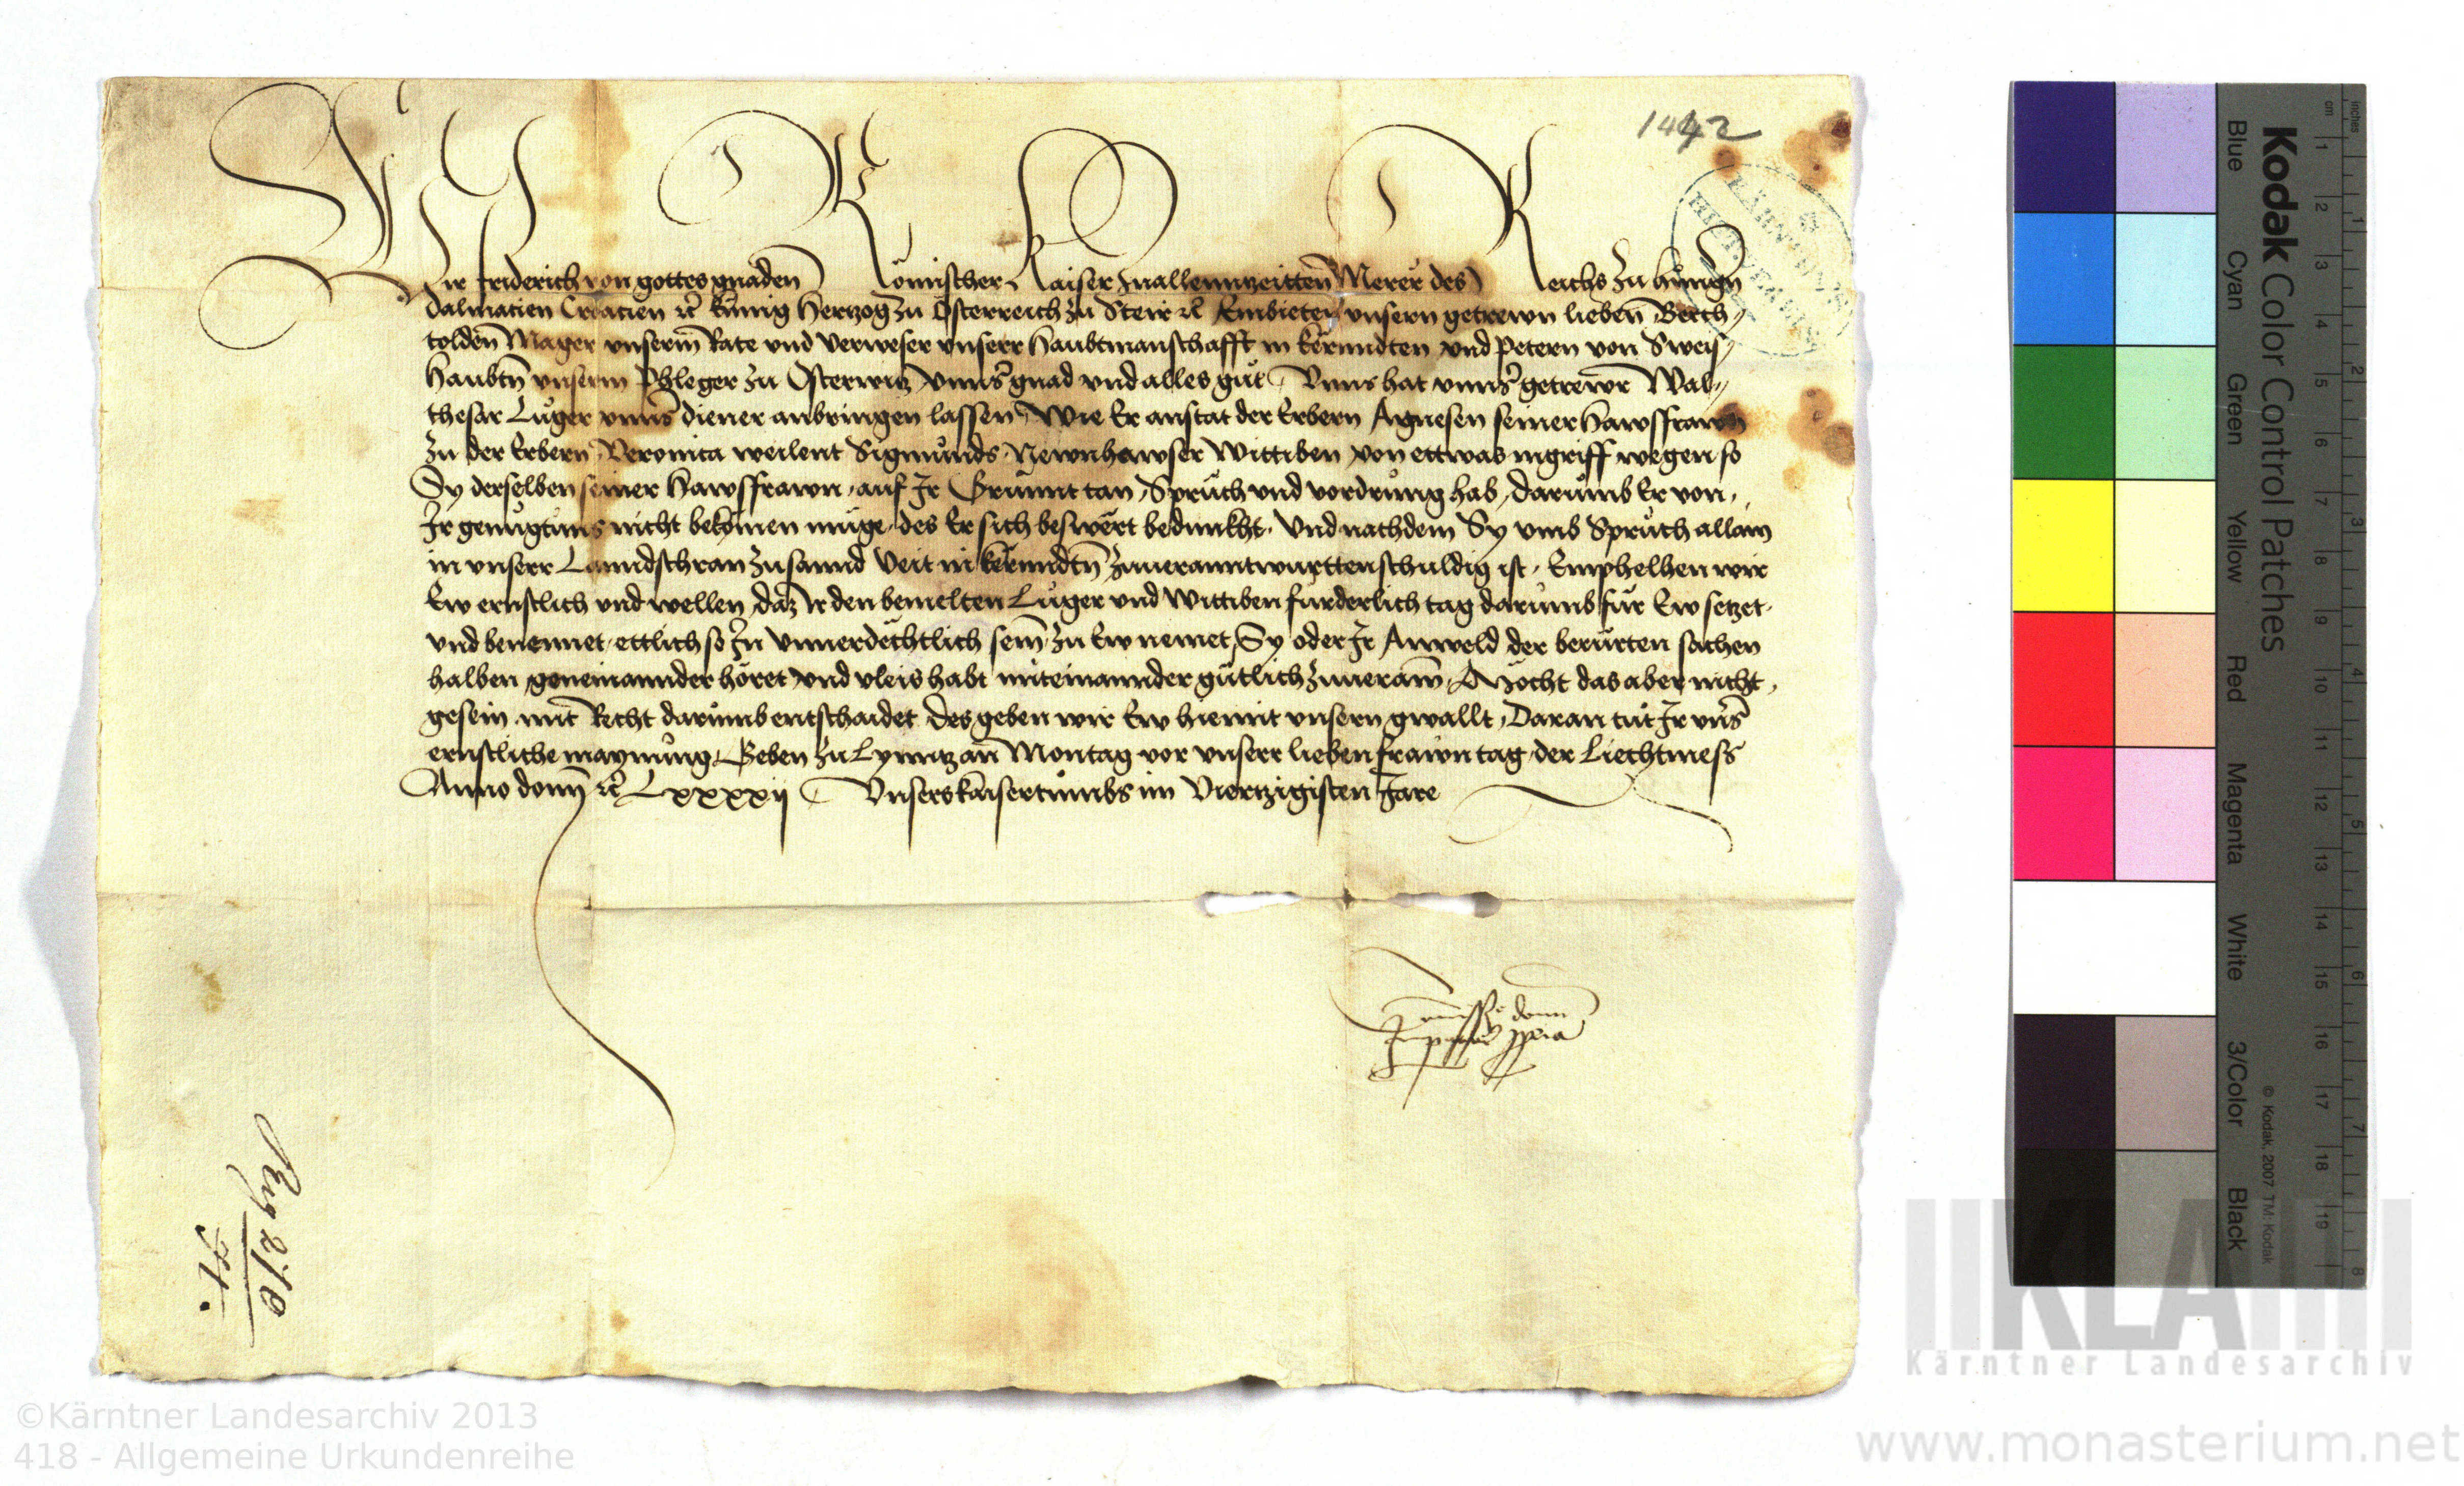 1442
Wir Friderich von gottes gnaden Römischer Kaiser zuallennzeitten Merer des Reichs zu Hungern
Dalmatien Croatien ꝛc Kunig Hertzog zu Österreich zu Steir ꝛc Embieten unsern getrewn lieben Berch⸗
tolden Mager unserm Rate und Verweser unserr Haubtmanschafft in kernndten und Petern von Sweis⸗
Haubtn unserm Phleger zu Osterwitz unnser gnad und alles gut Unns hat unnser getrewr Wal⸗
thesar Luger unnser diener anbringen lassen Wie Er anstat der Erbern Agnesen seiner Hawsfrawn
zu der Erbern Veronica weilent Sigmunds Newnhawser Wittiben von ettwas ingriff wegen so
Sy derselben seiner Hawsfrawn auf Ir Grünnt tan Spruch und vordrung hab darumb Er von
Ir genugtuns nicht bekomen muge des Er sich beswert bedunkht Und nachdem Sy umb Spruch allain
in unserr Lanndschran zu sannd Veit in kernndtn zuuerantwurtten schuldig ist Emphelhen wir
Ew ernstlich und wellen daz Ir den bemelten Luger und Wittiben furderlich tag darumb fur Ew setzet
und benennet ettlich so In unuerdechtlich sein zu Ew nemet Sy oder Ir Anweld der berurten sachen
halben geneinannder höret und vleis habt miteinannder gütlich zuuerain Möcht das aber nicht
gesein mit Recht darumb entschaidet des geben wir Ew hiemit unsern gwallt Daran tut Ir unser
ernstliche maynung Geben zu Lynntz an Montag vor unserr lieben frawn tag der Liechtmess
Anno domini ꝛc Lxxxxii Unsers kaisertumbs im Viertzigisten Jare
Commissio domini
Imperatoris propria
KÄRNTNER
HISTOR. VEREIN
Kodak Color Control Patches
Blue Cyan Green Yellow Red Magenta White 3/Color Black
© Kodak, 2007 TM: Kodak
inches
cm
1 2 3 4 5 6 7 8 9 10 11 12 13 14 15 16 17 18 19
1 2 3 4 5 6 7 8
KLA
Kärntner Landesarchiv
©Kärntner Landesarchiv 2013
418 - Allgemeine Urkundenreihe
www.monasterium.net